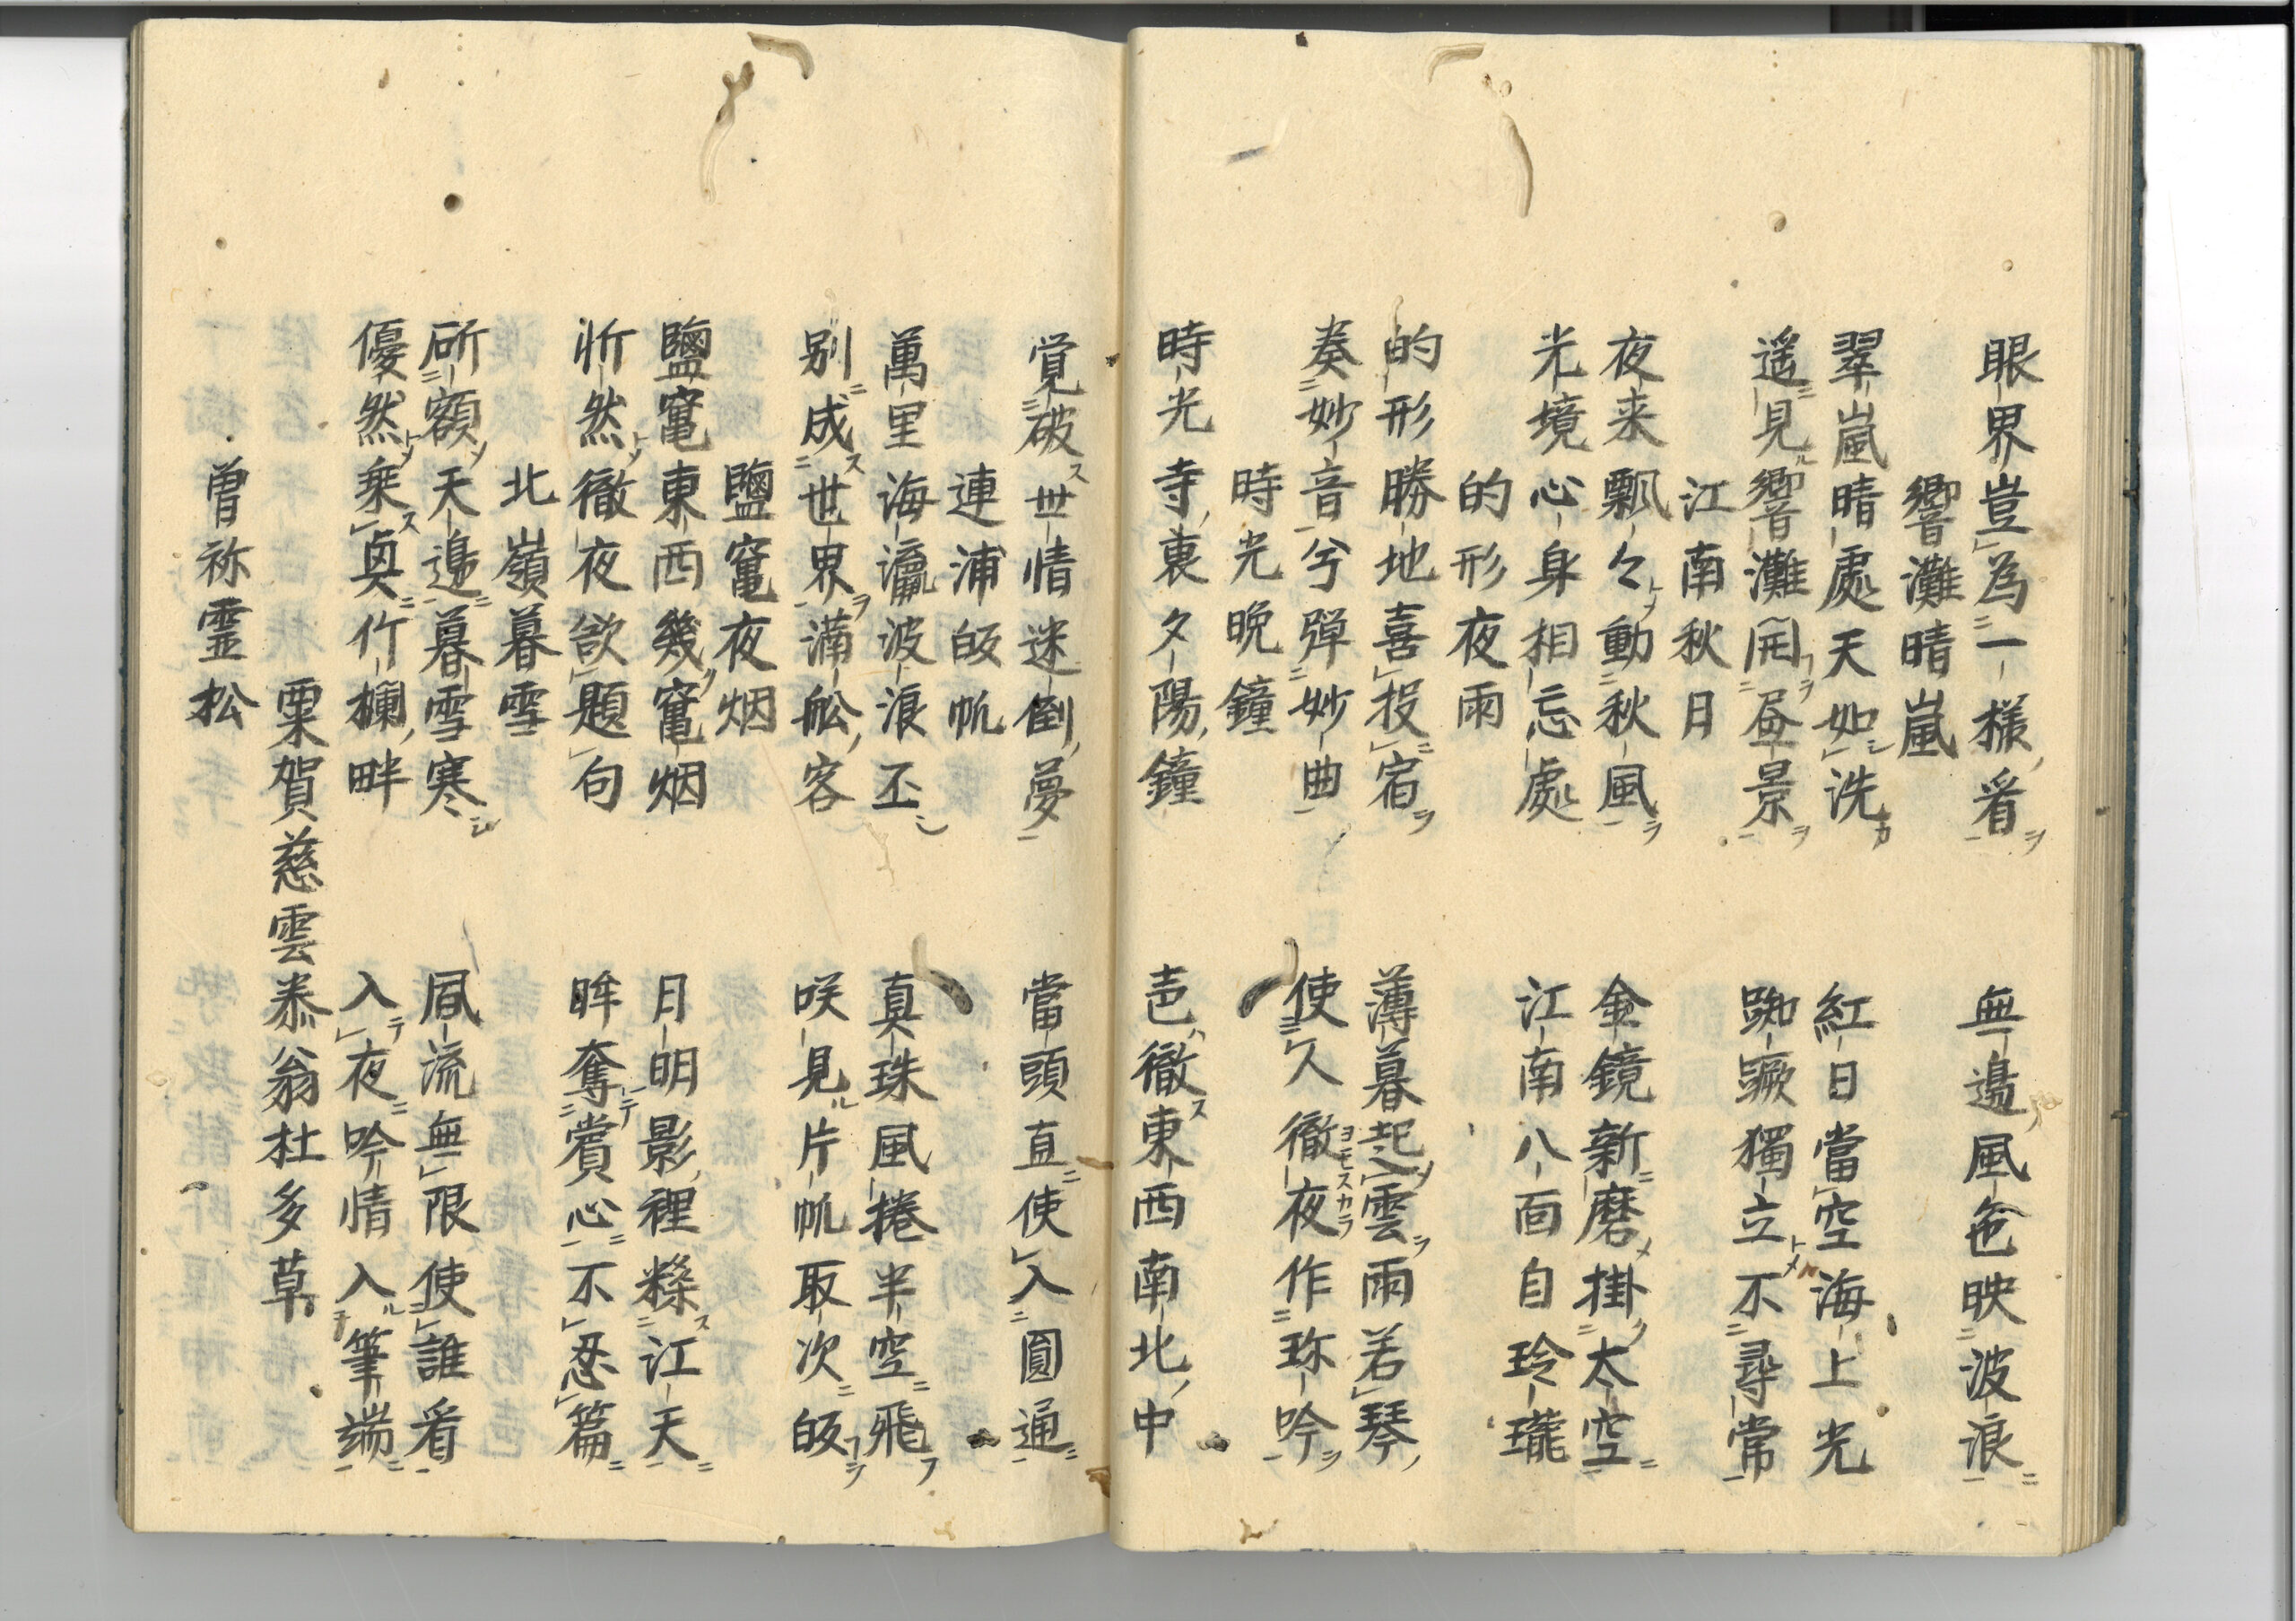 眼界豈為一様看　無邊風色映波浪
響灘晴嵐
翠嵐晴處天如洗　紅日當空海上光
遥見響灘開昼景　踟蹰獨立不尋常
江南秋日
夜来飄々動秋風　金鏡新磨掛太空
光境心身相忘處　江南八面自玲瓏
的形夜雨
的形勝地喜投宿　薄暮起雲雨若琴
奏妙音兮弾妙曲　使人徹夜作珎吟
時光晩鐘
時光寺裏夕陽鐘　声徹東西南北中
覚破世情迷倒夢　當頭直使入圓通
連浦皈帆
萬里海瀛波浪丕　真珠風捲半空飛
别成世界満舩客　咲見片帆取次皈
鹽竃夜烟
鹽竃東西幾竃烟　日明影裡糝江天
忻然徹夜欲題句　眸奪賞心不忍篇
北嶺暮雪
斫額天邉暮雪寒　風流無限使誰看
優然乗興竹欄畔　入夜吟情入筆端
粟賀慈雲恭翁杜多草
曽祢霊松